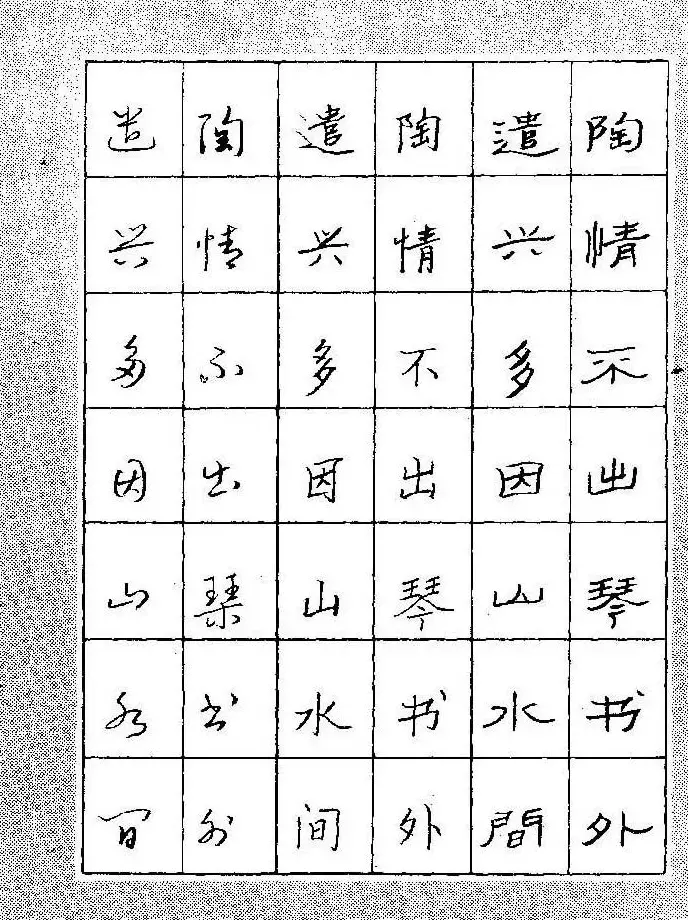 陶情不出琴书外
遣兴多因山水間
陶情不出琴书外
遣兴多因山水间
陶情不出琴书外
遣兴多因山水间